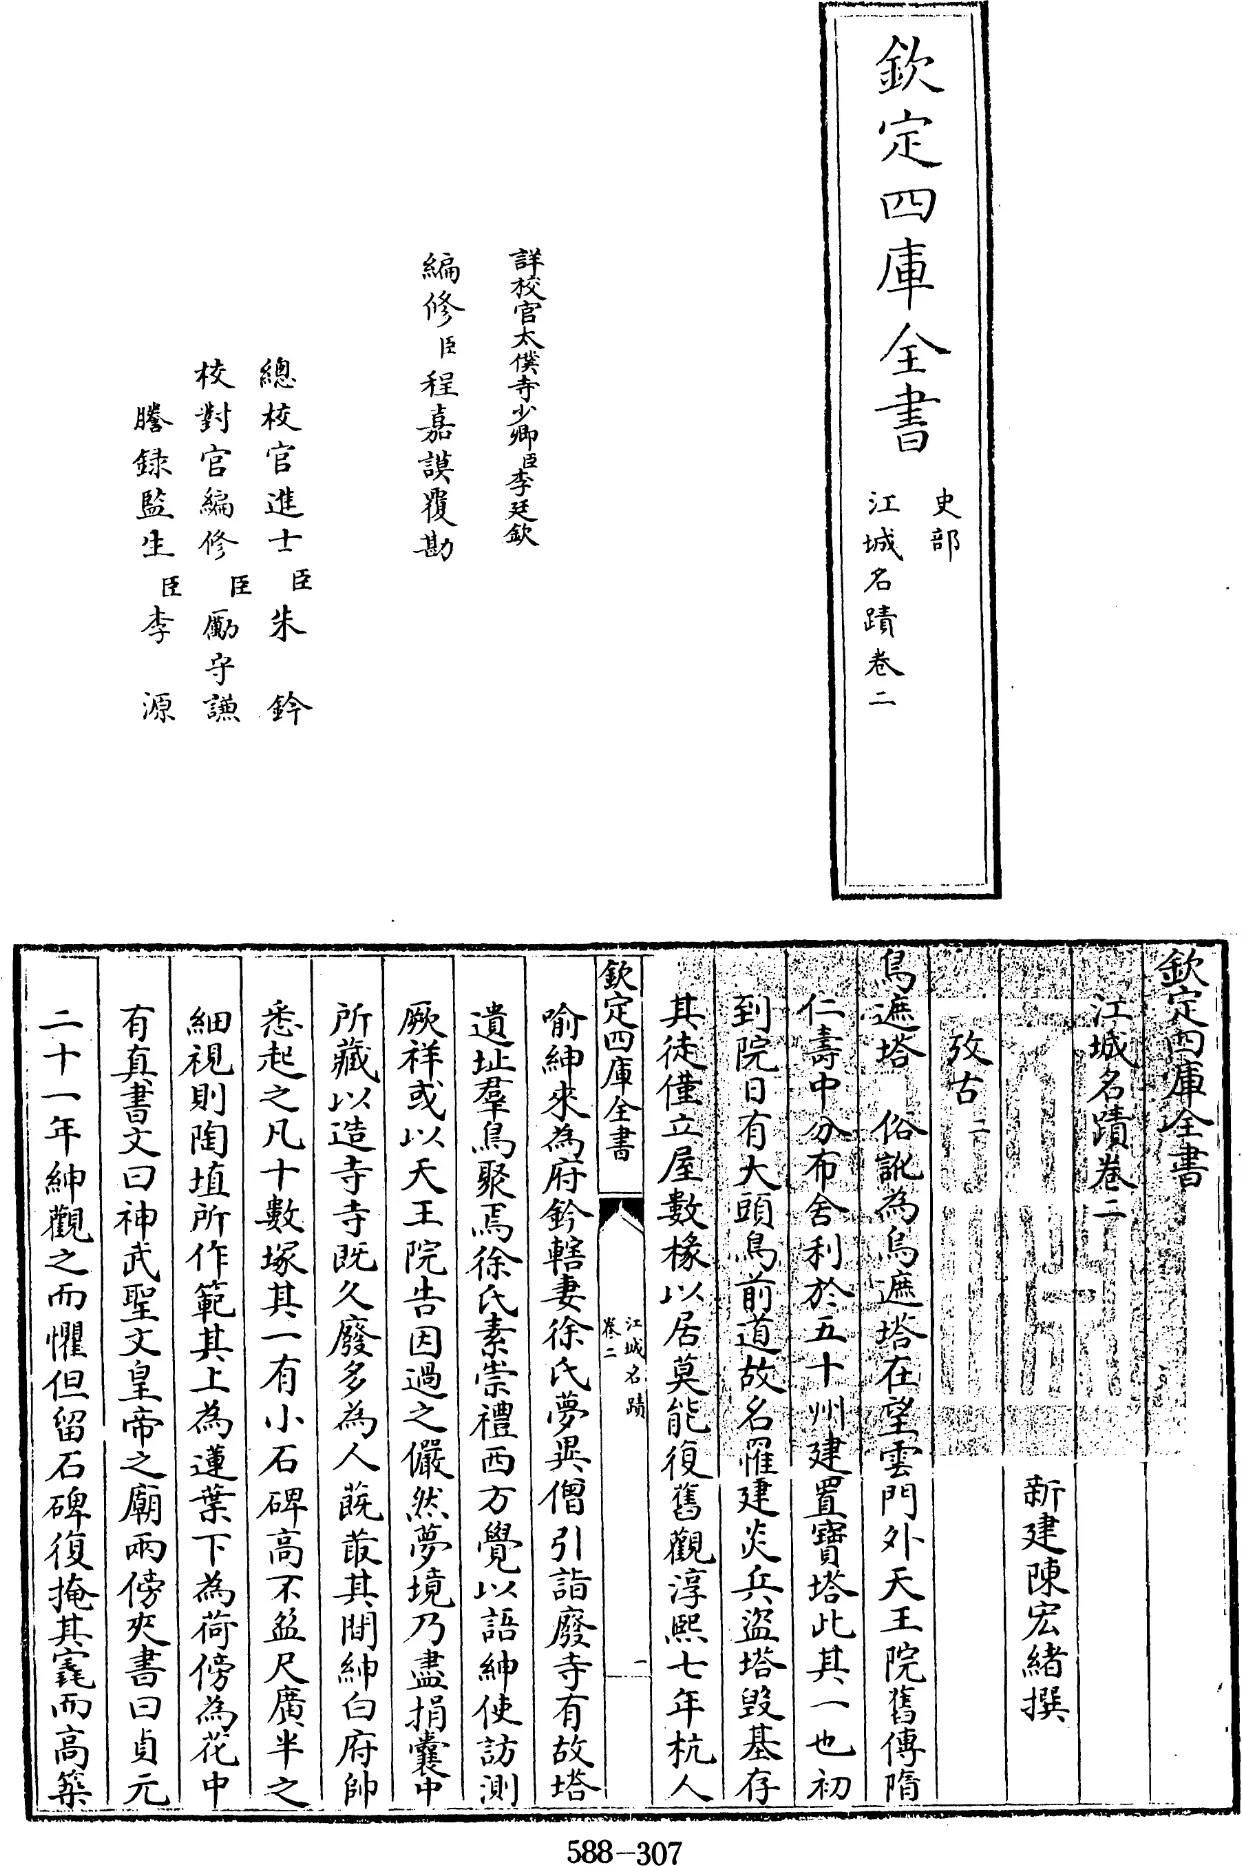 欽定四庫全書
史部
江城名蹟卷二
詳校官太僕寺少卿臣李廷欽
編修臣程嘉謨覆勘
總校官進士臣朱鈐
校對官編修臣勵守謙
謄録監生臣李源
欽定四庫全書
江城名蹟卷二
新建陳宏緒撰
攷古二
鳥遮塔 俗訛為烏遮塔在望雲門外天王院舊傳隋
仁壽中分布舍利於五十州建置寶塔此其一也初
到院日有大頭鳥前道故名罹建炎兵盜塔毀基存
其徒僅立屋數椽以居莫能復舊觀淳熙七年杭人
欽定四庫全書
江城名蹟
卷二
一
喻紳來為府鈐轄妻徐氏夢異僧引詣廢寺有故塔
遺址羣鳥聚焉徐氏素崇禮西方覺以語紳使訪測
厥祥或以天王院告因過之儼然夢境乃盡捐囊中
所藏以造寺寺既久廢多為人蓺葅其間紳白府帥
悉起之凡十數塚其一有小石碑高不盈尺廣半之
細視則陶埴所作範其上為蓮葉下為荷傍為花中
有真書文曰神武聖文皇帝之廟兩傍夾書曰貞元
二十一年紳觀之而懼但留石碑復掩其竁而高築
588-307